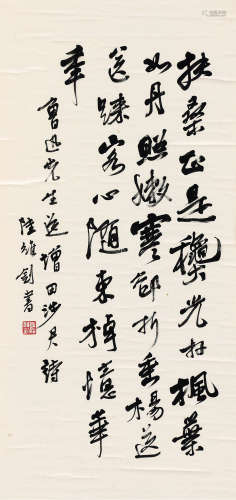 扶桑正是龝光好楓葉
如丹照嫩寒卻折垂楊送
送歸客心隨東棹憶華
年
魯迅先生送增田涉君詩
陸維釗書